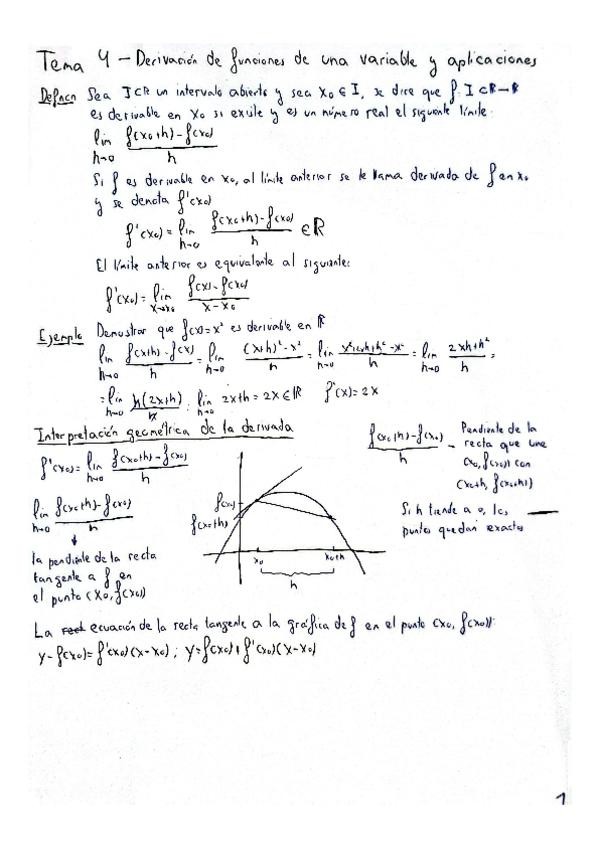 Tema 4 - Derivación de funciones de una variable y aplicaciones
Defncn Sea I⊂R un intervalo abierto y sea x₀ ∈ I, se dice que f: I⊂R→R
es derivable en x₀ si existe y es un número real el siguiente límite:
lim h→0 (f(x₀+h)-f(x₀))/h
Si f es derivable en x₀, al límite anterior se le llama derivada de f en x₀
y se denota f'(x₀)
f'(x₀) = lim h→0 (f(x₀+h)-f(x₀))/h ∈ R
El límite anterior es equivalente al siguiente:
f'(x₀) = lim x→x₀ (f(x)-f(x₀))/(x-x₀)
Ejemplo Demostrar que f(x)=x² es derivable en R
lim h→0 (f(x+h)-f(x))/h = lim h→0 ((x+h)²-x²)/h = lim h→0 (x²+2xh+h²-x²)/h = lim h→0 (2xh+h²)/h =
= lim h→0 h(2x+h)/h = lim h→0 2x+h = 2x ∈ R f'(x)=2x
Interpretación geométrica de la derivada
f'(x₀) = lim h→0 (f(x₀+h)-f(x₀))/h
lim h→0 (f(x₀+h)-f(x₀))/h
↓
la pendiente de la recta
tangente a f en
el punto (x₀, f(x₀))
f(x₀)
f(x₀+h)
x₀
x₀+h
h
(f(x₀+h)-f(x₀))/h - Pendiente de la
recta que une
(x₀, f(x₀)) con
(x₀+h, f(x₀+h))
Si h tiende a 0, los
puntos quedan exactos
La ecuación de la recta tangente a la gráfica de f en el punto (x₀, f(x₀)):
y-f(x₀)=f'(x₀)(x-x₀); y=f(x₀)+f'(x₀)(x-x₀)
1